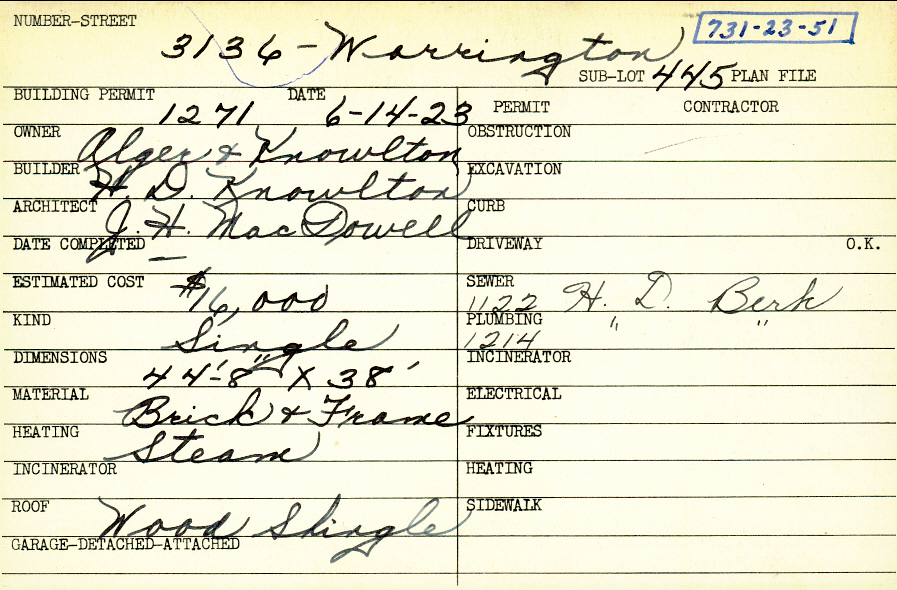 NUMBER-STREET 3136-Warrington 731-23-51
SUB-LOT 445 PLAN FILE
BUILDING PERMIT 1271 DATE 6-14-23
OWNER Alger & Knowlton
BUILDER H. D. Knowlton
ARCHITECT J. H. MacDowell
DATE COMPLETED —
ESTIMATED COST $16,000
KIND Single
DIMENSIONS 44'-8" X 38'
MATERIAL Brick & Frame
HEATING Steam
INCINERATOR
ROOF Wood Shingle
GARAGE-DETACHED-ATTACHED
PERMIT CONTRACTOR
OBSTRUCTION
EXCAVATION
CURB
DRIVEWAY O.K.
SEWER 1122 H. D. Berk
PLUMBING 1214 " "
INCINERATOR
ELECTRICAL
FIXTURES
HEATING
SIDEWALK